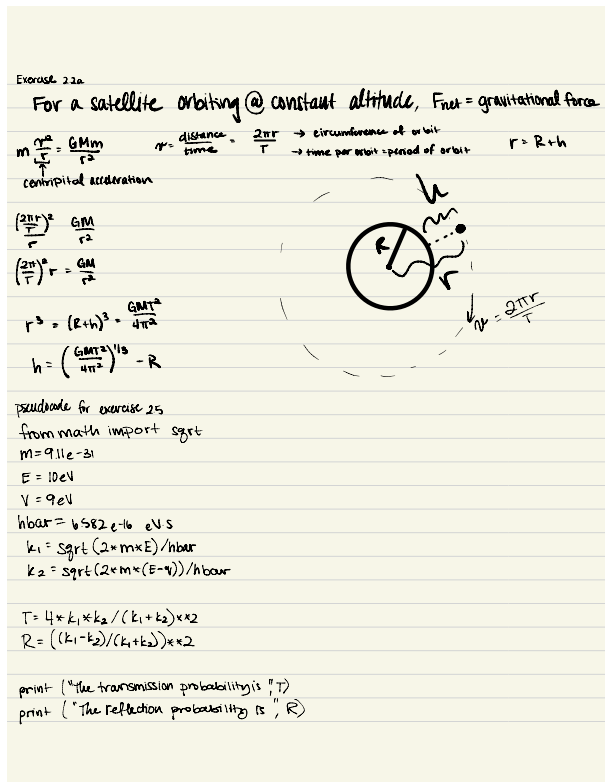 Exercise 2.2a
For a satellite orbiting @ constant altitude, Fnet = gravitational force
m v²/r = GMm/r²
v = distance/time = 2πr/T → circumference of orbit
→ time per orbit = period of orbit
r = R+h
centripital acceleration
(2πr/T)²/r GM/r²
(2π/T)² r = GM/r²
r³ = (R+h)³ = GMT²/4π²
h = (GMT²/4π²)^1/3 - R
h
R
r
v = 2πr/T
pseudocode for exercise 2.5
from math import sqrt
m = 9.11e-31
E = 10eV
V = 9eV
hbar = 6582e-16 eV·s
k₁ = sqrt(2*m*E)/hbar
k₂ = sqrt(2*m*(E-V))/hbar
T = 4*k₁*k₂/(k₁+k₂)**2
R = ((k₁-k₂)/(k₁+k₂))**2
print ("The transmission probability is ", T)
print ("The reflection probability is ", R)